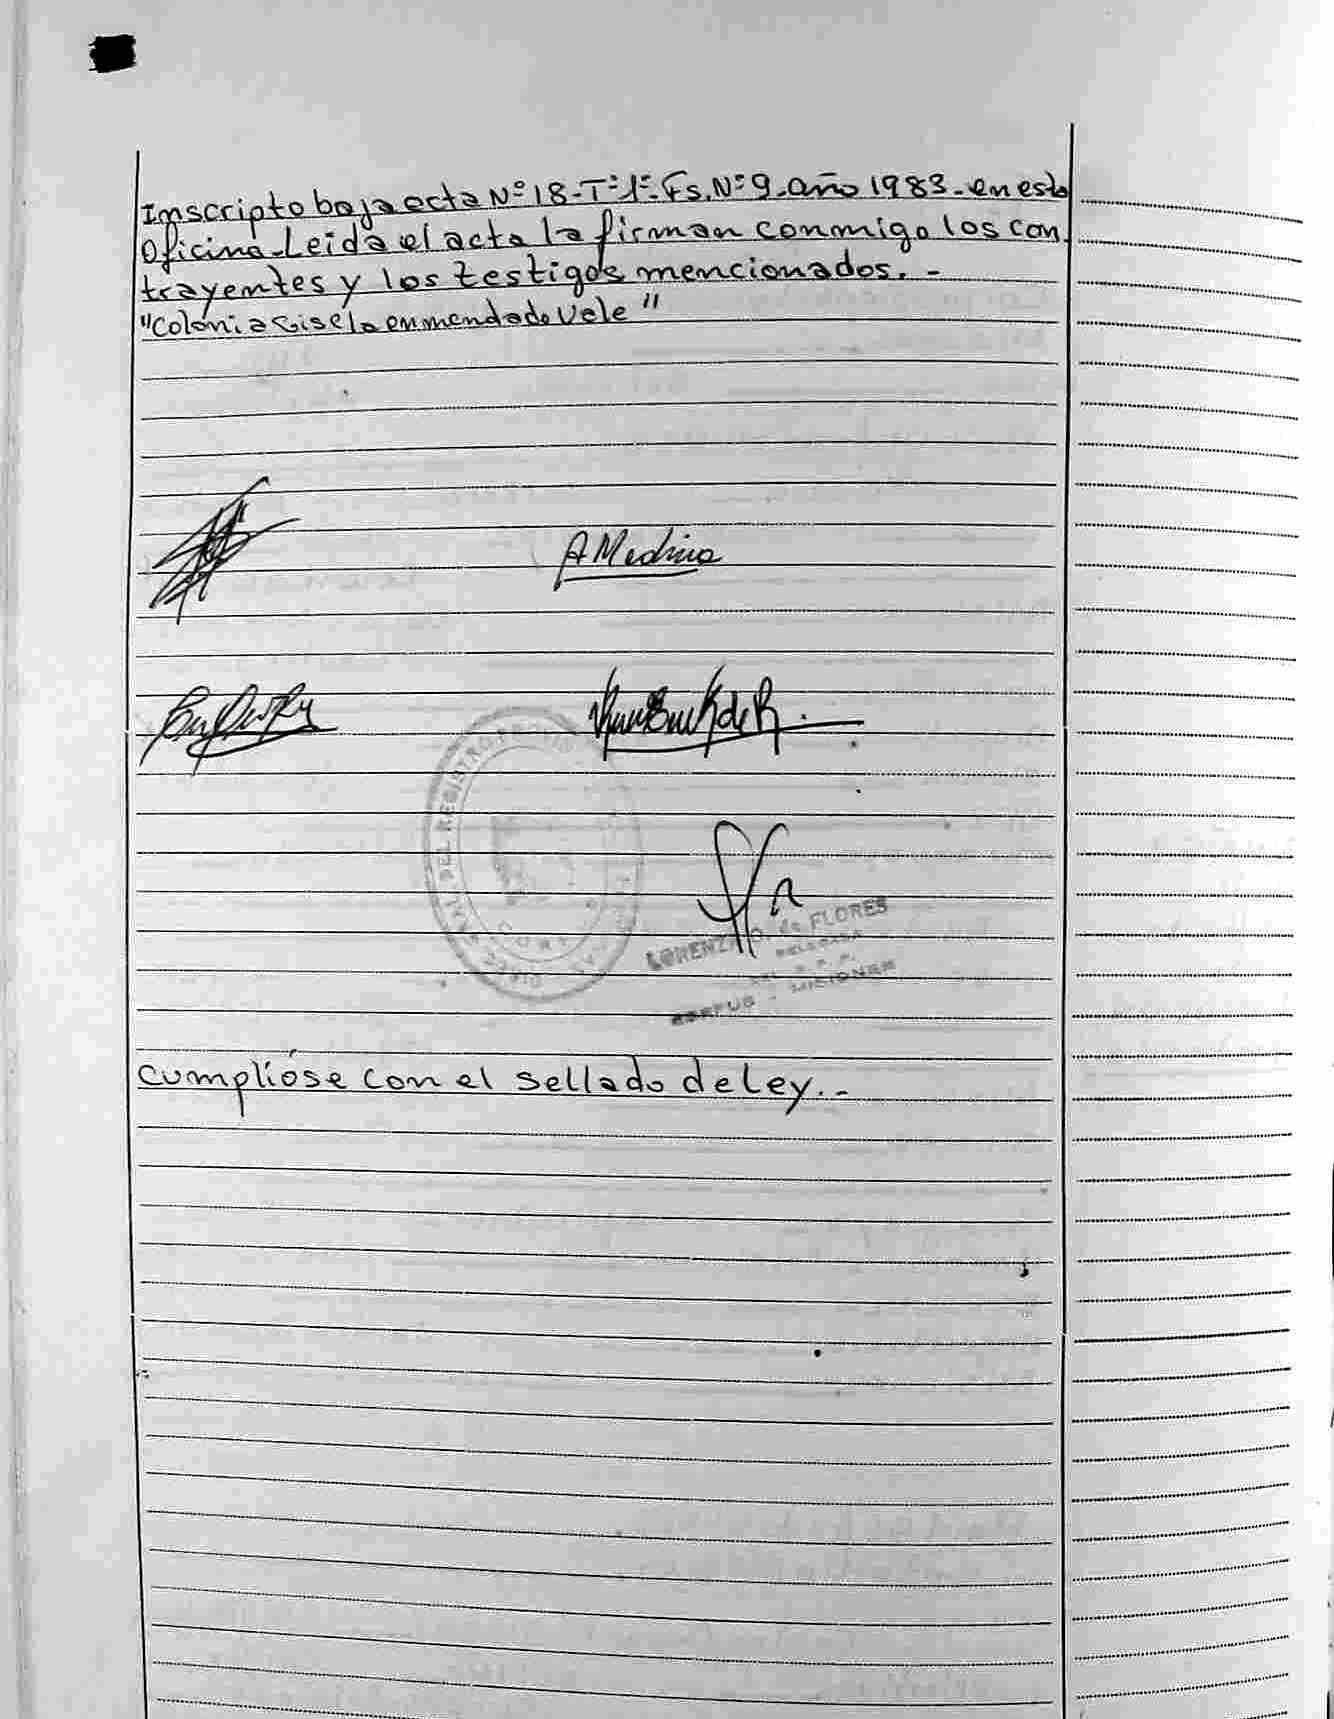 Inscripto bajo acta Nº 18-Tº1º-Fs. Nº 9-año 1983-en esta
Oficina-Leida el acta la firman conmigo los con
trayentes y los testigos mencionados.-
"Colonia Gisela enmendado Vale"
A Medina
DEL REGISTRO
LORENZA O. de FLORES
DELEGADA
CORPUS - MISIONES
cumplióse con el sellado de Ley..-